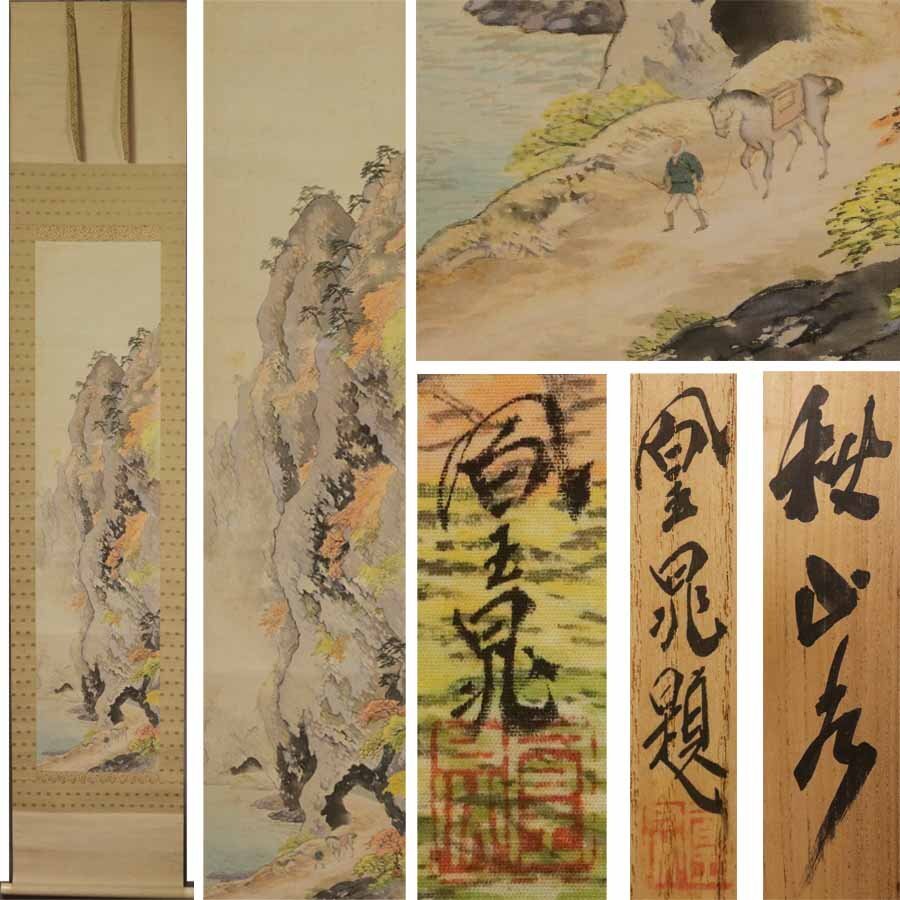 凰晁
凰晁題
秋山水